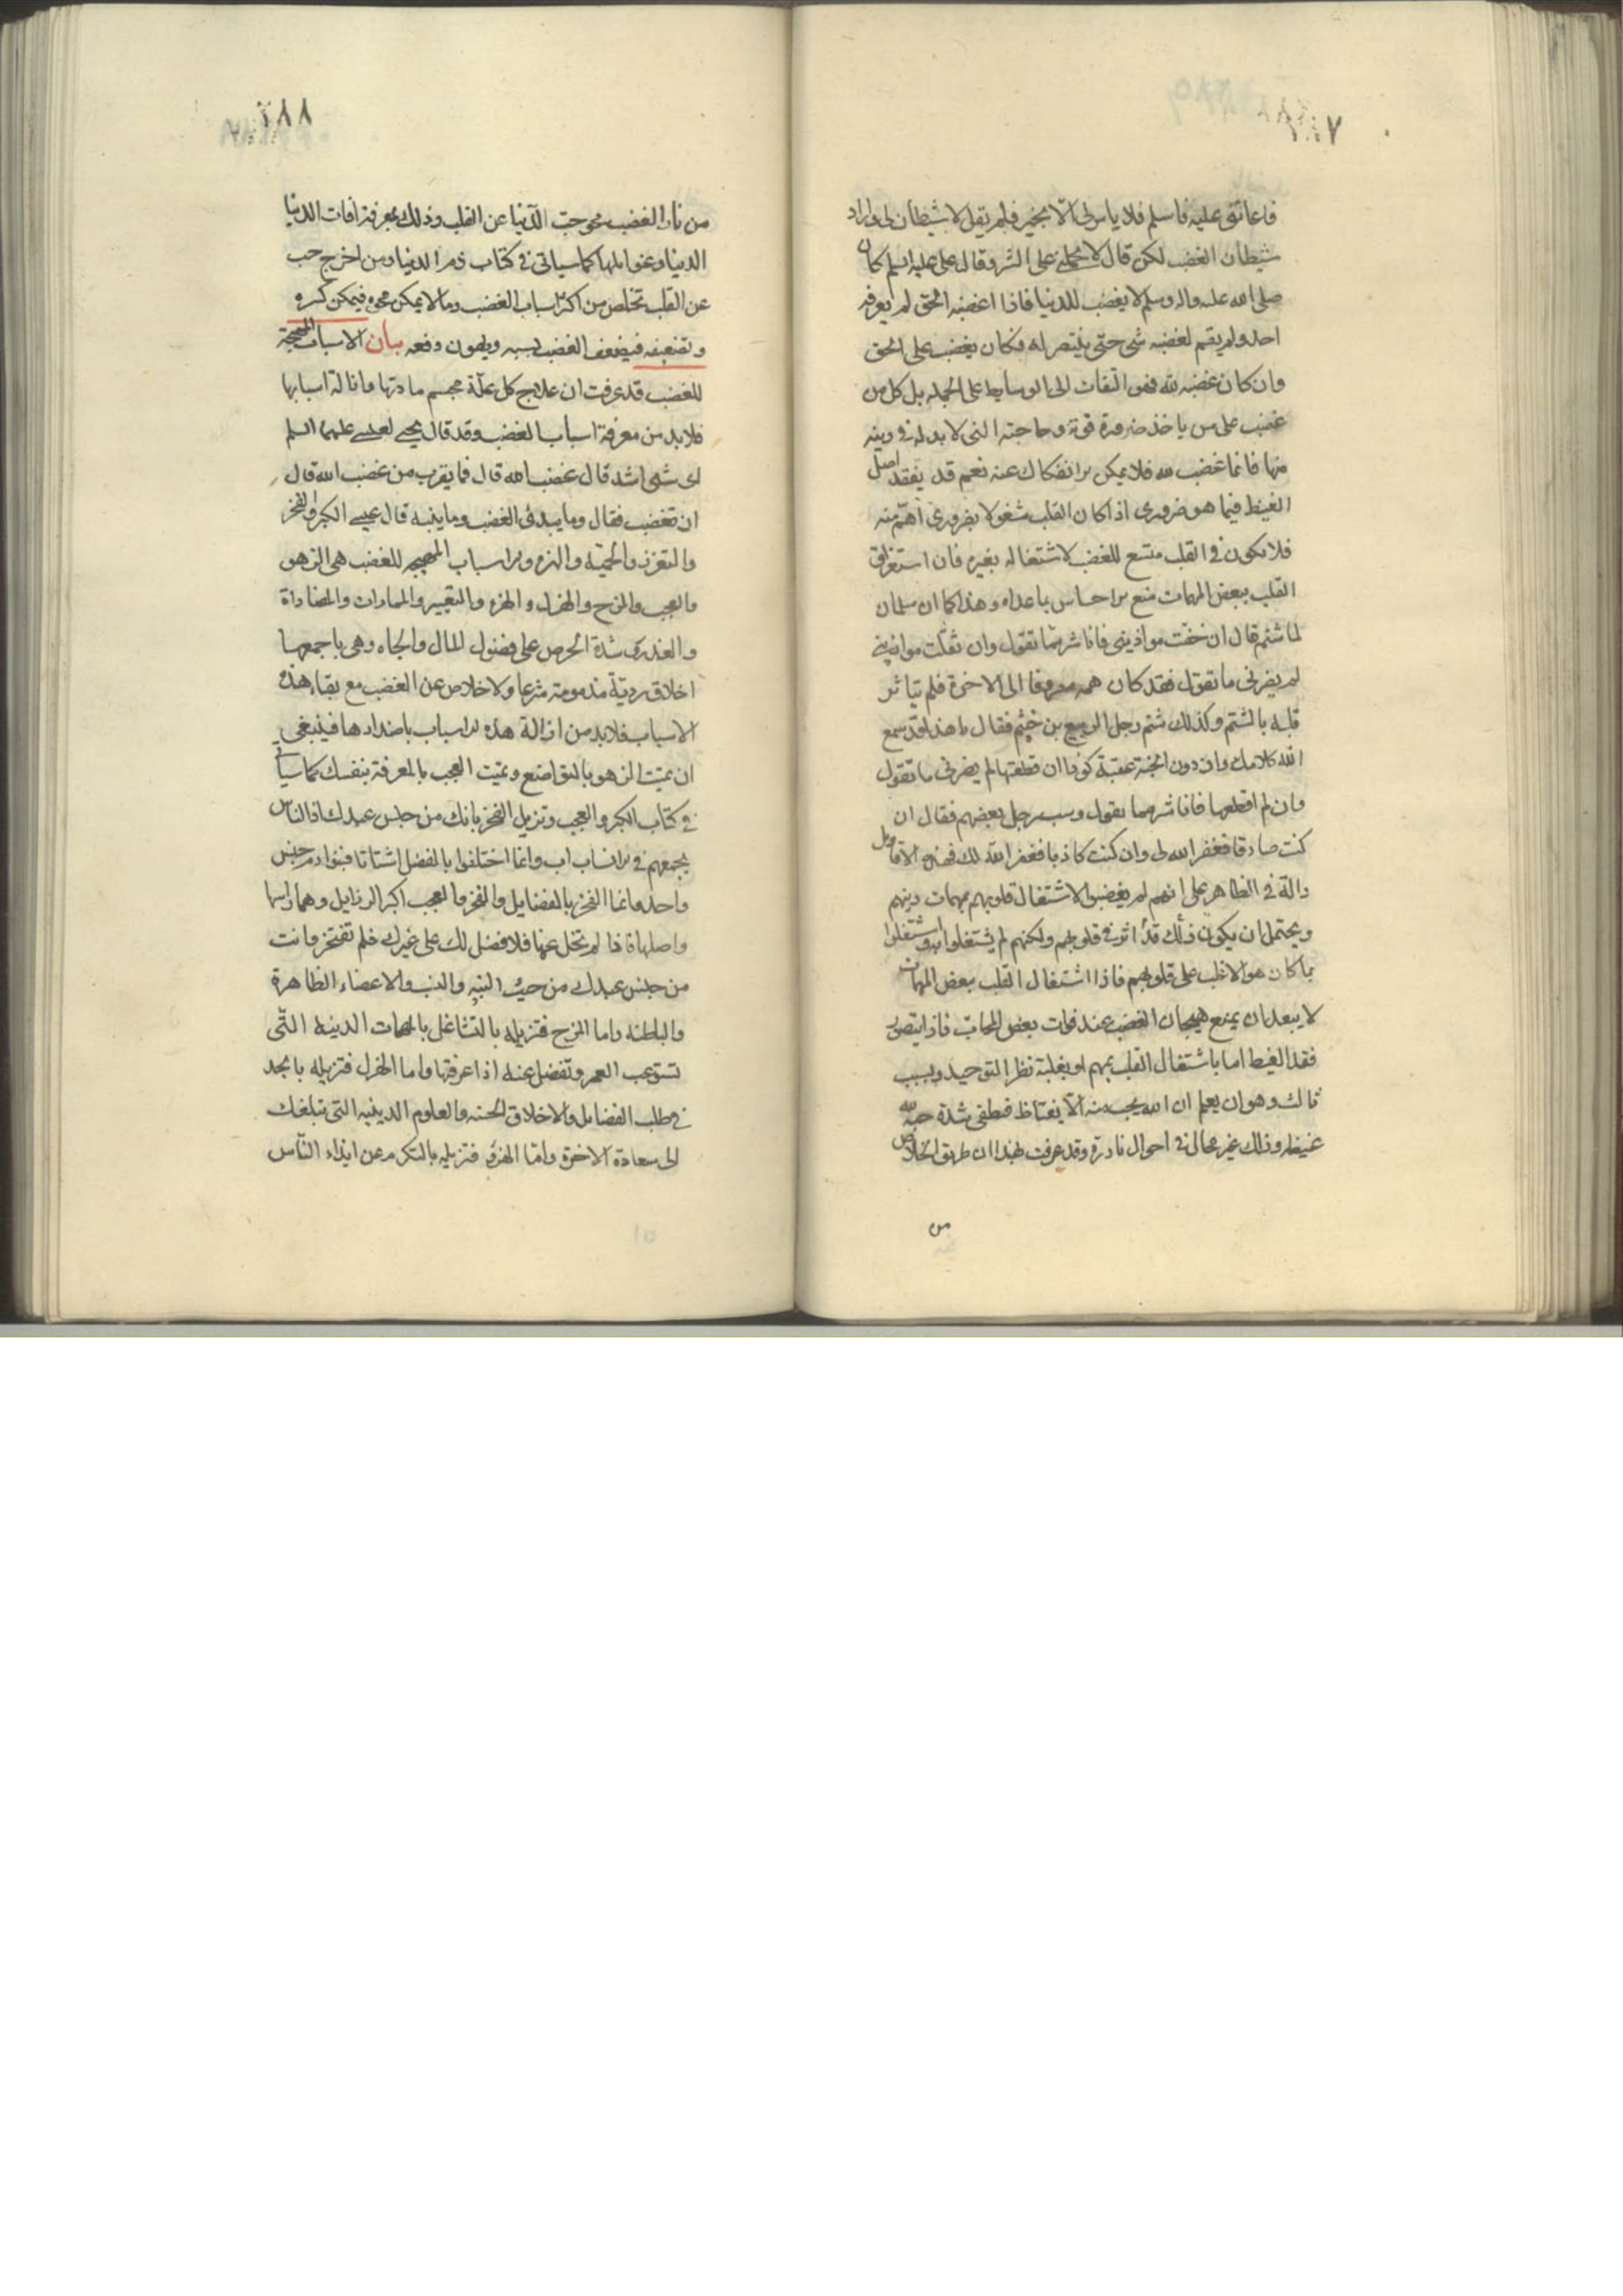 ٢٨٧
فاعانني عليه فاسلم فلا يامرني الا بخير فلم يقل لا شيطان لي واراد
شيطان الغضب لكن قال لا يحملني على الشر وقال علي عليه السلم كان
صلى الله عليه واله وسلم لا يغضب للدنيا فاذا اغضبه الحق لم يعرفه
احد ولم يقم لغضبه شي حتى ينتصر له فكان يغضب على الحق
وان كان غضبه لله فهو التفات الى الوسايط على الجملة بل كل من
غضب على من ياخذ ضرورة قوته وحاجته التي لا بد له في دينه
منها فانما غضب لله فلا يمكن الانفكاك عنه نعم قد يفقد اصل
الغيظ فيما هو ضروري اذا كان القلب مشغولا بضروري اهم منه
فلا يكون في القلب متسع للغضب لاشتغاله بغيره فان استغراق
القلب ببعض المهمات منع الاحساس بما عداه وهذا كما ان سلمان
لما شتم قال ان خفت موازيني فانا شر مما تقول وان ثقلت موازيني
لم يضرني ما تقول فقد كان همه مصروفا الى الاخرة فلم يتاثر
قلبه بالشتم وكذلك شتم رجل الربيع بن خثيم فقال يا هذا قد سمع
الله كلامك وان دون الجنة عقبة كؤدا ان قطعتها لم يضرني ما تقول
وان لم اقطعها فانا شر مما تقول وسب رجل بعضهم فقال ان
كنت صادقا فغفر الله لي وان كنت كاذبا فغفر الله لك فهذه الاقاويل
دالة في الظاهر على انهم لم يغضبوا لاشتغال قلوبهم بمهمات دينهم
ويحتمل ان يكون ذلك قد اثر في قلوبهم ولكنهم لم يشتغلوا به واشتغلوا
بما كان هو الاغلب على قلوبهم فاذا اشتغال القلب ببعض المهمات
لا يبعد ان يمنع هيجان الغضب عند فوات بعض المحاب فاذا يتصور
فقد الغيظ اما باشتغال القلب بمهم او بغلبة نظر التوحيد وبسبب
ثالث وهو ان يعلم ان الله يحب منه الا يغتاظ فيطفي شدة حبه لله
غيظه وذلك غير محال في احوال نادرة وقد عرفت بهذا ان طريق الخلاص
من
٢٨٨
من نار الغضب محو حب الدنيا عن القلب وذلك بمعرفة افات الدنيا
الدنيا وغوايلها كما سياتي في كتاب ذم الدنيا ومن اخرج حب
عن القلب تخلص من اكثر اسباب الغضب وما لا يمكن محوه فيمكن كسره
وتضعيفه فيضعف الغضب بسببه ويهون دفعه بيان الاسباب المهيجة
للغضب قد عرفت ان علاج كل علة بحسم مادتها وازالة اسبابها
فلا بد من معرفة اسباب الغضب وقد قال يحيى لعيسى عليهما السلم
اى شي اشد قال غضب الله قال فما يقرب من غضب الله قال
ان تغضب فقال وما يبدئ الغضب وما ينبته قال عيسى الكبر والفخر
والتعزز والحمية والاسباب المهيجة للغضب هي الزهو
والعجب والمزح والهزل والهزء والتعيير والممارات والمضاداة
والغدر وشدة الحرص على فضول المال والجاه وهي باجمعها
اخلاق ردية مذمومة شرعا ولا خلاص عن الغضب مع بقاء هذه
الاسباب فلا بد من ازالة هذه الاسباب باضدادها فينبغي
ان تميت الزهو بالتواضع وتميت العجب بالمعرفة بنفسك كما سياتي
في كتاب الكبر والعجب وتزيل الفخر بانك من جنس عبدك اذ الناس
يجمعهم في الانساب اب وانما اختلفوا بالفضل اشتاتا فبنو ادم جنس
واحد وانما الفخر بالفضايل والفخر والعجب اكبر الرذايل وهما راسها
واصلها فاذا لم تخل عنها فلا فضل لك على غيرك فلم تفتخر وانت
من جنس عبدك من حيث البنية والنسب والاعضاء الظاهرة
والباطنة واما المزح فتزيله بالتشاغل بالمهمات الدينية التي
تستوعب العمر وتفضل عنه اذا عرفتها واما الهزل فتزيله بالجد
في طلب الفضايل والاخلاق الحسنه والعلوم الدينيه التي تبلغك
الى سعادة الاخرة واما الهزء فتزيله بالتكرم عن ايذاء الناس